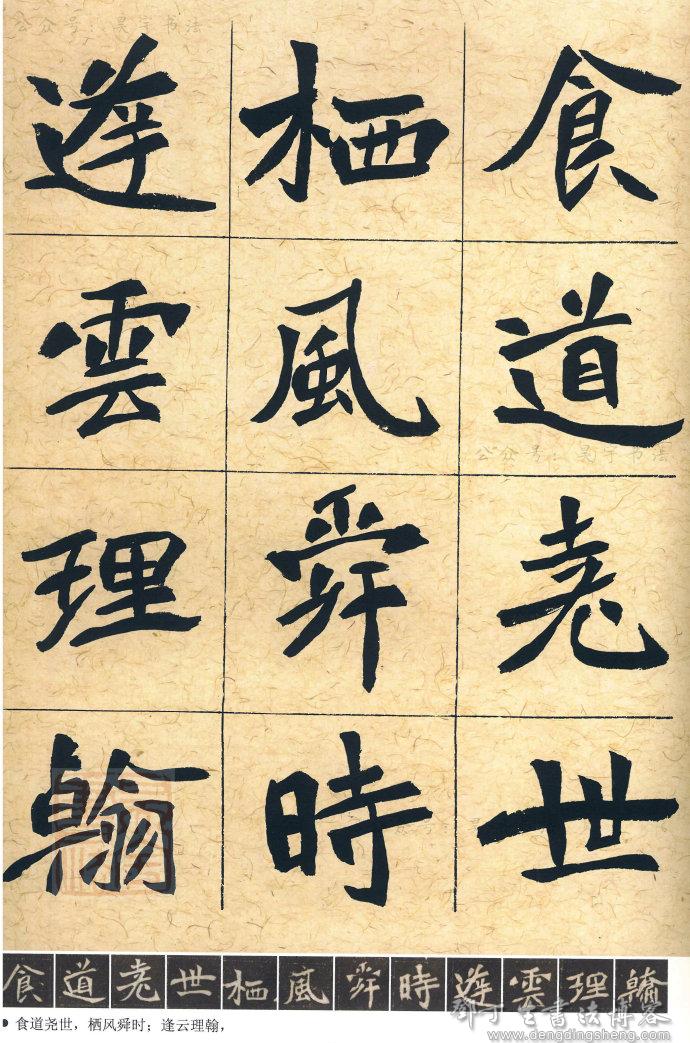 公众号：昊宇书法
食道堯世
栖風舜時
逢雲理翰
公众号：昊宇书法
食道堯世栖風舜時逢雲理翰
食道尧世，栖风舜时；逢云理翰，
邓丁生书法博客
www.dengdingsheng.com